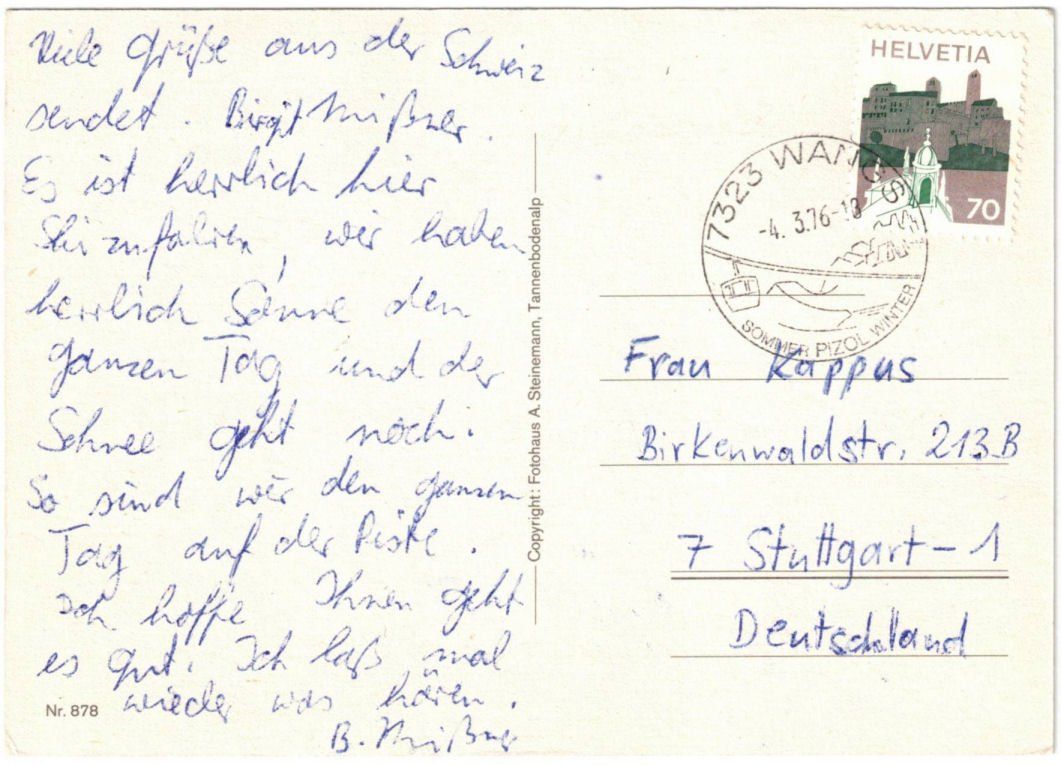 Viele Grüße aus der Schweiz
sendet. Birgit
Es ist herrlich hier
Ski zu fahren, wir haben
herrlich Sonne den
ganzen Tag und der
Schnee geht noch.
So sind wir den ganzen
Tag auf der Piste.
Ich hoffe Ihnen geht
es gut. Ich laß mal
wieder was hören.
B.
Nr. 878
Copyright: Fotohaus A. Steinemann, Tannenbodenalp
HELVETIA
70
7323 WANGS
-4. 3.76-18
SOMMER PIZOL WINTER
Frau Kappus
Birkenwaldstr. 213B
7 Stuttgart-1
Deutschland